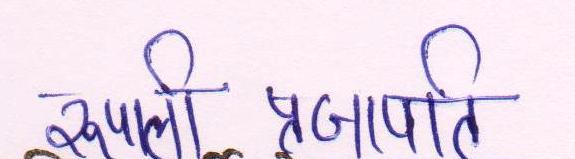 रूपाली प्रजापति